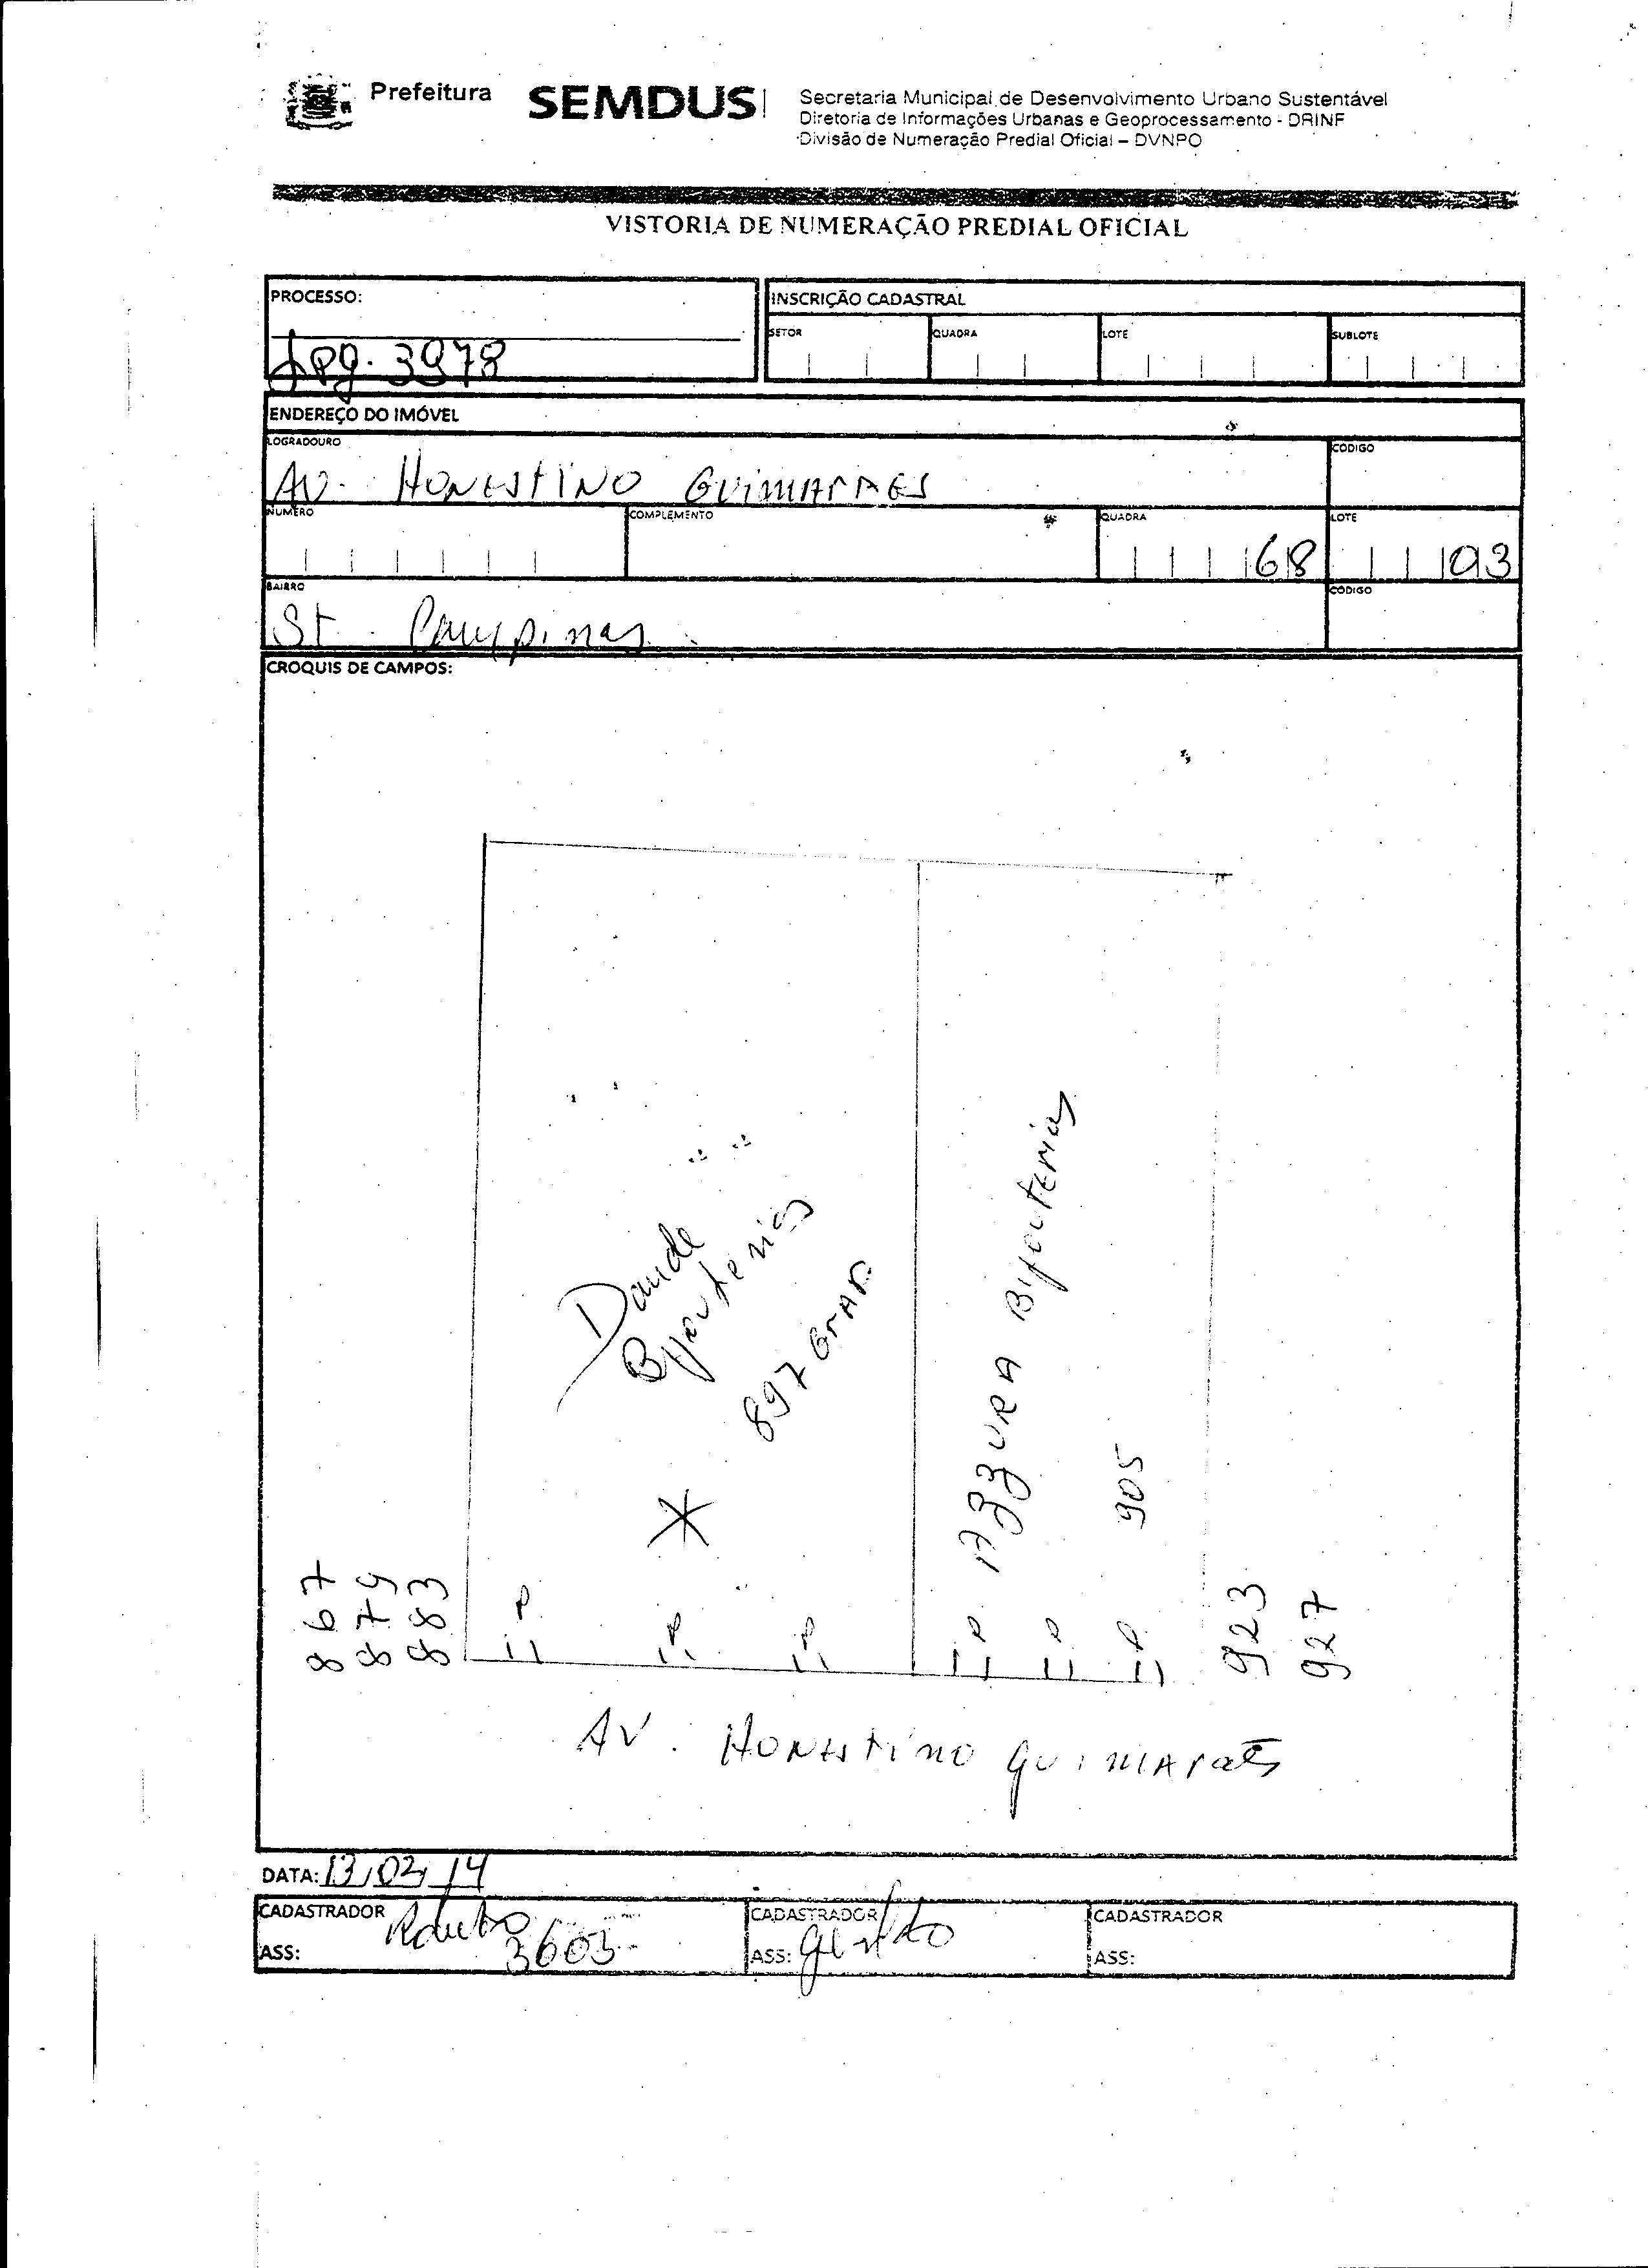 Prefeitura
SEMDUS
Secretaria Municipal de Desenvolvimento Urbano Sustentável
Diretoria de Informações Urbanas e Geoprocessamento - DRINF
Divisão de Numeração Predial Oficial – DVNPO
VISTORIA DE NUMERAÇÃO PREDIAL OFICIAL
PROCESSO:
3978
INSCRIÇÃO CADASTRAL
SETOR QUADRA LOTE SUBLOTE
ENDEREÇO DO IMÓVEL
LOGRADOURO CÓDIGO
AV. HONESTINO GUIMARAES
NUMERO COMPLEMENTO QUADRA LOTE
68 03
BAIRRO CÓDIGO
St. Campinas
CROQUIS DE CAMPOS:
Bijouterias
897
AZZURA Bijouterias
905
867
879
883
P P P P P P
923
927
AV. HONESTINO GUIMARAES
DATA: 13/02/14
CADASTRADOR CADASTRADOR CADASTRADOR
3603
ASS: ASS: ASS: